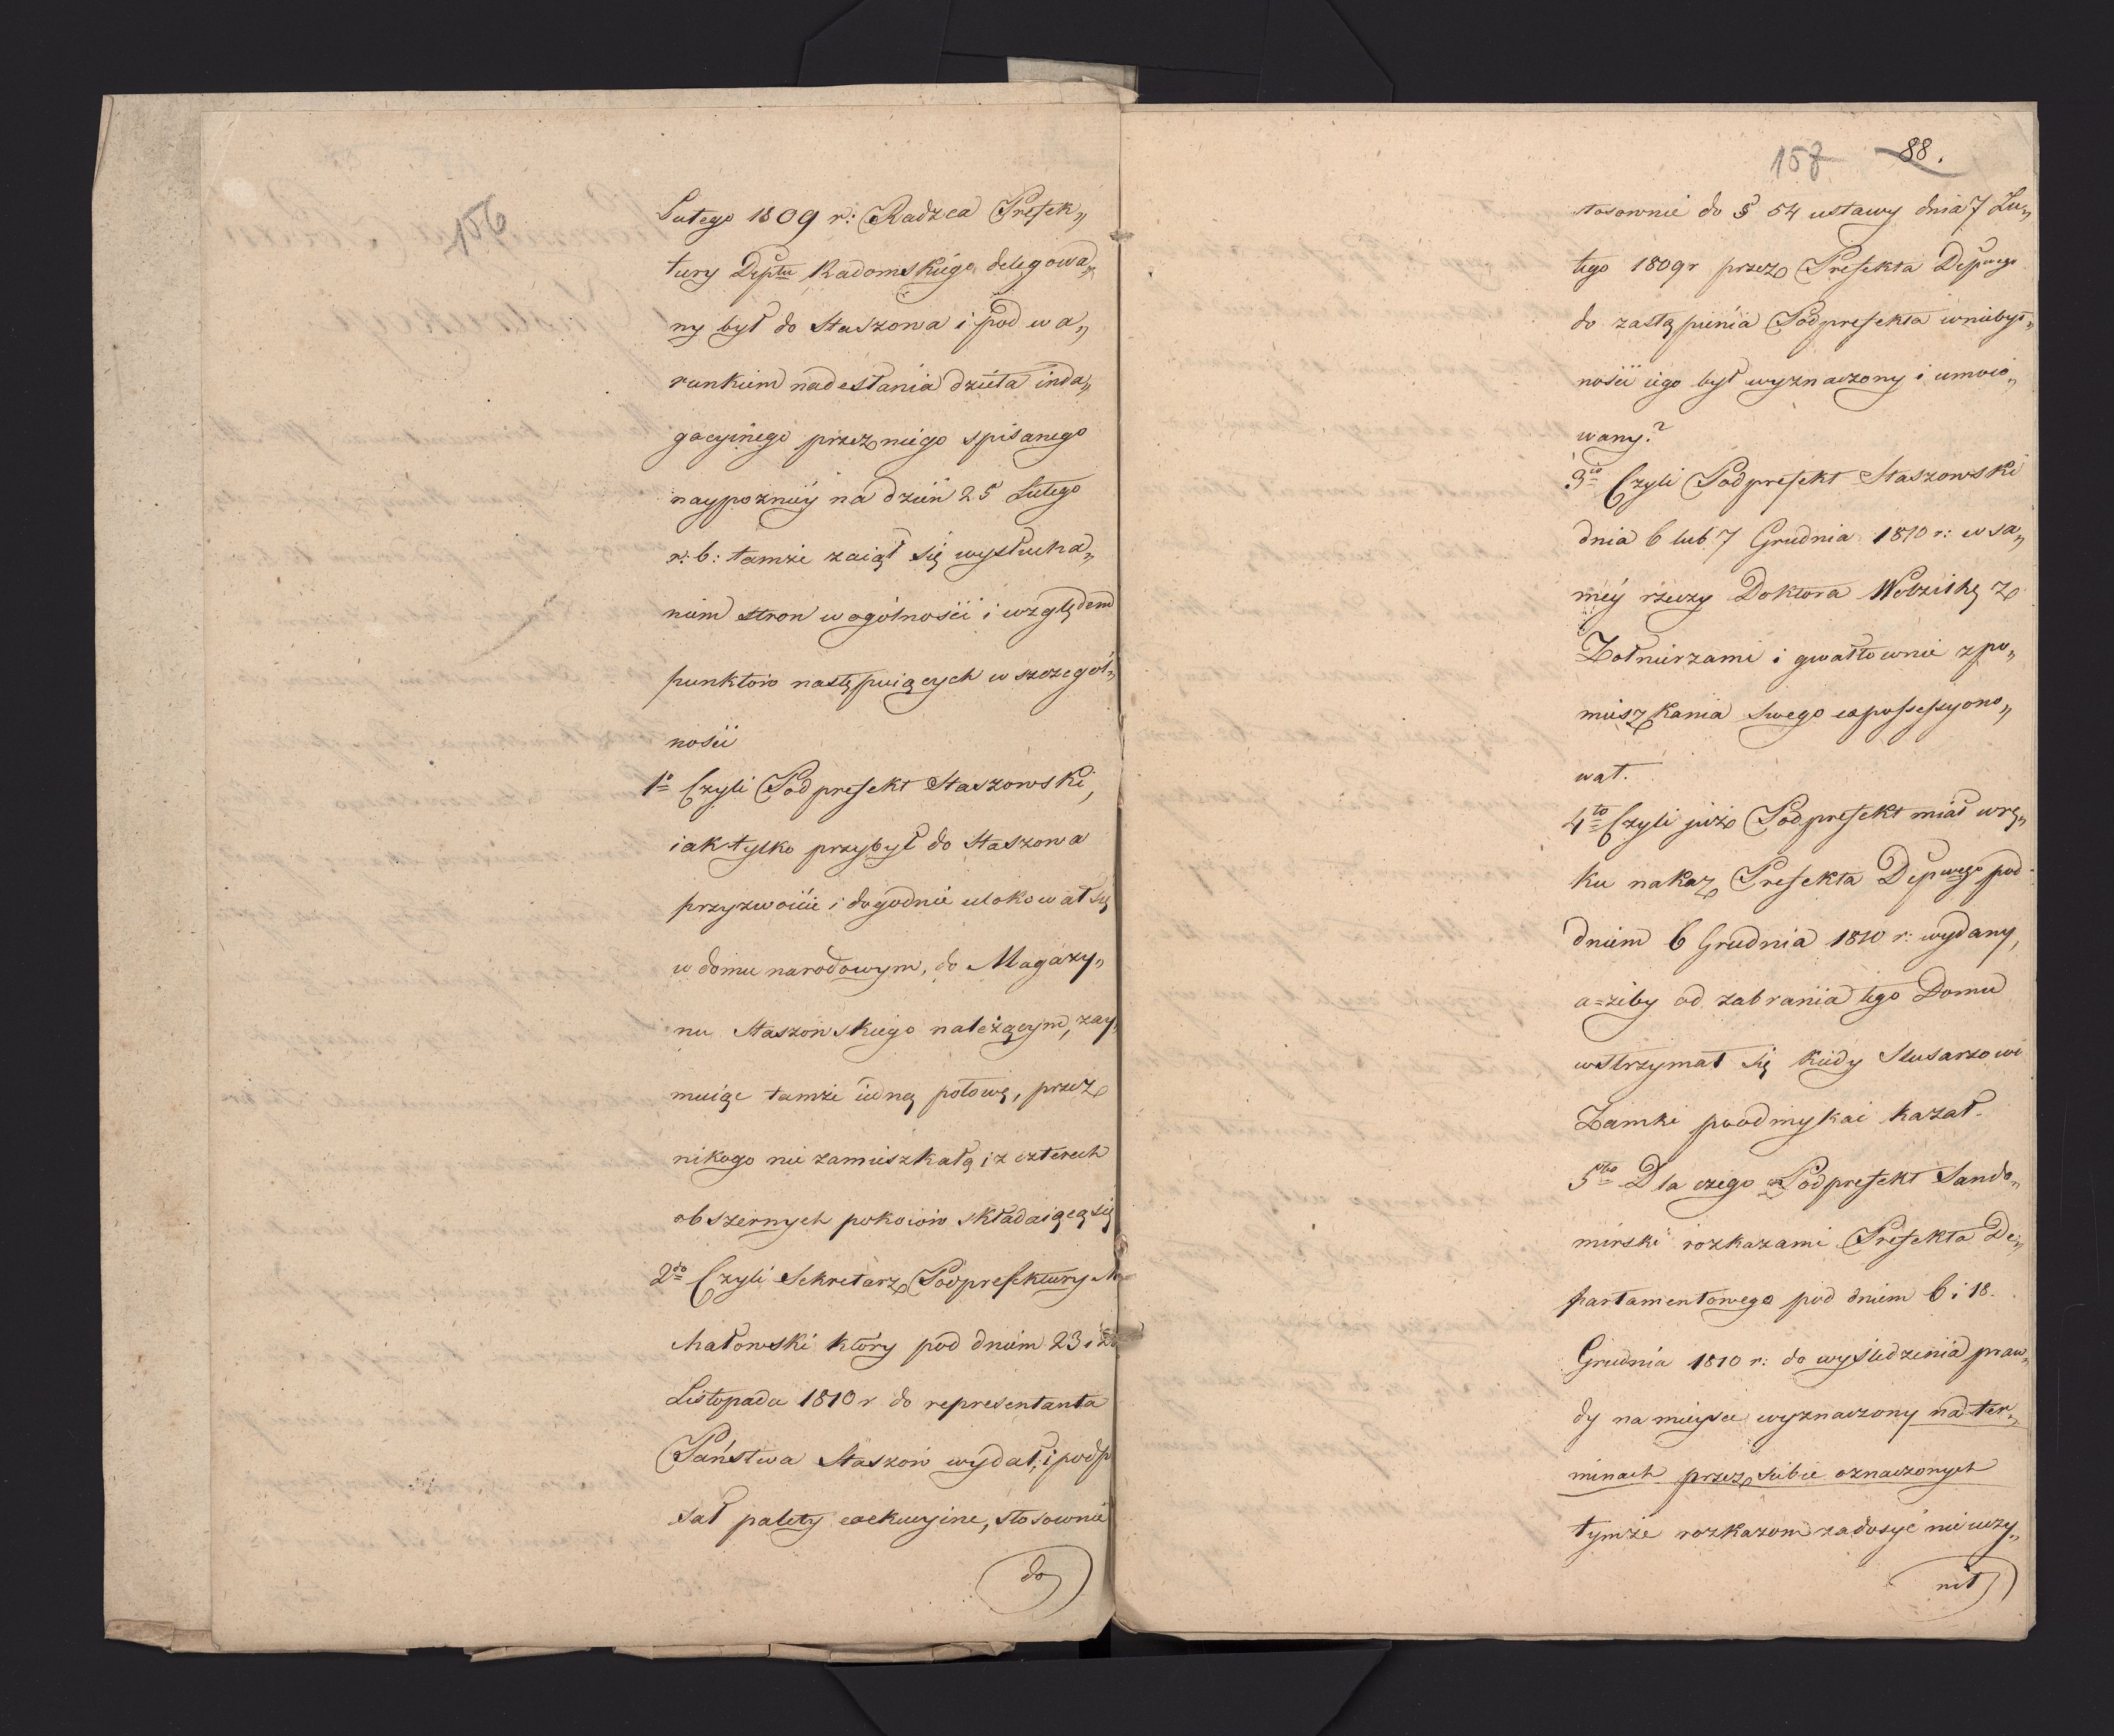 156
Lutego 1809 r: Radzca Prefek„
tury Deptu Radomskiego delegowa„
ny był do Staszowa i pod wa„
runkiem nadesłania dzieła inda„
gacyinego przez niego spisanego
naypozniey na dzień 25 Lutego
r: b: tamże zaiął się wysłucha„
niem stron w ogólności i względem
punktów następuiących w szczegól„
ności
1o Czyli Podprefekt Staszowski,
iak tylko przybył do Staszowa
przyzwoicie i dogodnie ulokował się
w domu narodowym, do Magazy„
nu Staszowskiego należącym, zay„
muiąc tamże iedną połowę, przez
nikogo nie zamieszkałą i z czterech
obszernych pokoiów składaiącą się
2do Czyli Sekretarz Podprefektury
chałowski który pod dniem 23 i
Listopada 1810 r do representanta
Państwa Staszów wydał, i podp
sał palety exekucyine, stosownie
do
157 88.
stosownie do § 54 ustawy dnia 7 Lu„
tego 1809 r przez Prefekta Depwego
do zastąpienia Podprefekta w niebyt„
ności iego był wyznaczony i umoco„
wany?
3cio Czyli Podprefekt Staszowski
dnia 6 lub 7 Grudnia 1810 r: w sa„
mey rzeczy Doktora Wobzitkę z
Żołnierzami i gwałtownie z po„
mieszkania swego expossessyono„
wał.
4to Czyli iuż Podprefekt miał w rę„
ku nakaz Prefekta Depwego pod
dniem 6 Grudnia 1810 r: wydany,
a=żeby od zabrania tego Domu
wstrzymał się kiedy Slusarzowi
Zamki poodmykać kazał.
5to Dla czego Podprefekt Sando„
mirski rozkazami Prefekta De„
partamentowego pod dniem 6 i 18.
Grudnia 1810 r: do wyśledzenia praw„
dy na mieysce wyznaczony na ter„
minach przez siebie oznaczonych
tymże rozkazom zadosyć nie uczy„
nił